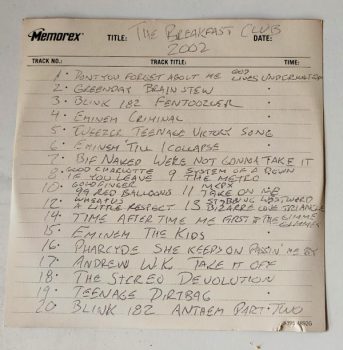 Memorex TITLE: THE BREAKFAST CLUB DATE:
2002
TRACK NO.: TITLE: TIME:
1. DON'T YOU FORGET ABOUT ME GOD LIVES UNDERWATER
2. GREENDAY BRAIN STEW
3. BLINK 182 FENTOOZLER
4 EMINEM CRIMINAL
5 WEEZER TEENAGE VICTORY SONG
6 EMINEM TILL I COLLAPSE
7 BIF NAKED WERE NOT GONNA TAKE IT
8 GOOD CHARLOTTE IF YOU LEAVE 9 SYSTEM OF A DOWN THE METRO
10 GOLDFINGER 99 RED BALLOONS 11 MXPX TAKE ON ME
12. WHEATUS A LITTLE RESPECT 13 STABBING WESTWARD BIZARRE LOVE TRIANGLE
14 TIME AFTER TIME ME FIRST & THE GIMME GIMMES
15 EMINEM THE KIDS
16 PHARCYDE SHE KEEPS ON PASSIN' ME BY
17 ANDREW W.K. TAKE IT OFF
18 THE STEREO DEVOLUTION
19 TEENAGE DIRTBAG
20 BLINK 182 ANTHEM PART TWO